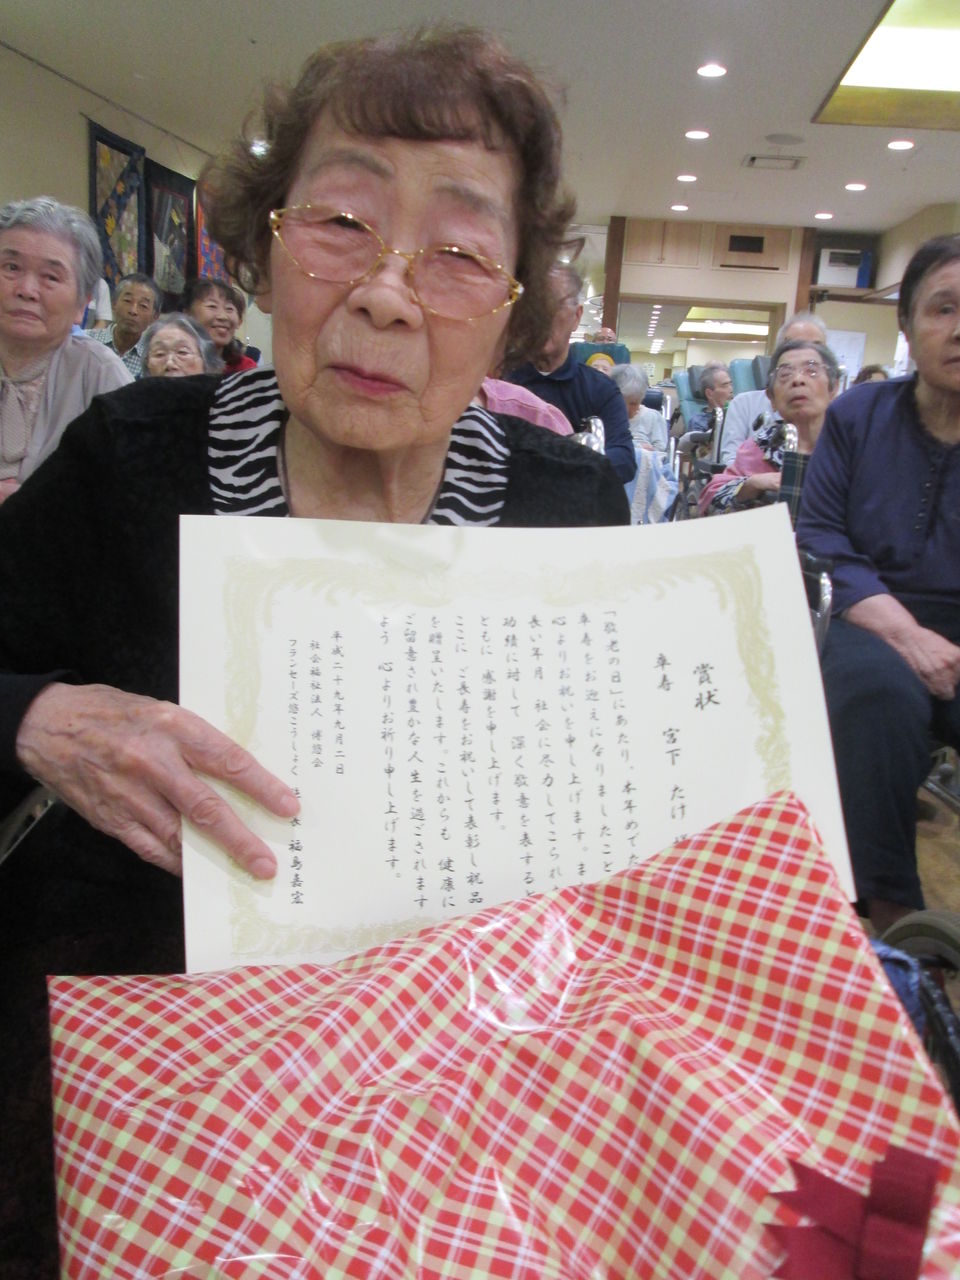 賞状
卒寿 宮下 たけ 様
「敬老の日」にあたり、本年めでた
卒寿をお迎えになりましたこと
心よりお祝いを申し上げます。ま
長い年月 社会に尽力してこられ
功績に対して 深く敬意を表すると
ともに 感謝を申し上げます。
ここに ご長寿をお祝いして表彰し祝品
を贈呈いたします。これからも 健康に
ご留意され豊かな人生を過ごされます
よう 心よりお祈り申し上げます。
平成二十九年九月二日
社会福祉法人 博悠会
フランセーズ悠こうしょく 福島嘉宏